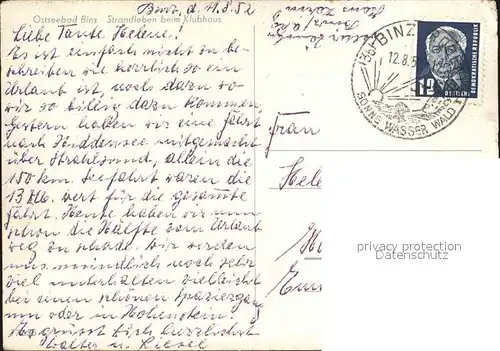 Ostseebad Binz Strandleben beim Klubhaus
Binz, d. 11.8.52
Liebe Tante Helene!
Es ist einfach nicht zu be-
schreiben wie herrlich so ein
Urlaub ist, noch dazu wo
wir so billig dazu kommen.
Gestern haben wir eine Fahrt
nach Hiddensee mitgemacht
über Stralsund, allein die
150 km. Seefahrt waren die
13 M. wert für die gesamte
Fahrt. Heute haben wir nun
schon die Hälfte vom Urlaub
weg zu schade. Wir werden
uns mündlich noch sehr
viel unterhalten vielleicht
bei einem schönen Spaziergang
nun oder in Hohenstein.
Es grüsst Dich herzlichst
Walter u. Liesel
BINZ
12.8.5
SONNE WASSER WALD
12
DEUTSCHE
DEMOKRATISCHE REPUBLIK
Frau
Hele
privacy protection
Datenschutz